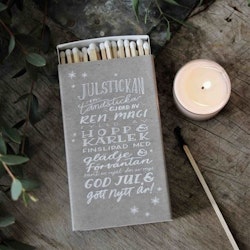 JULSTICKAN
en
tändsticka
GJORD AV
REN MAGI
HOPP &
KÄRLEK
FINSLIPAD MED
glädje &
förväntan
GOD JUL &
gott nytt år!